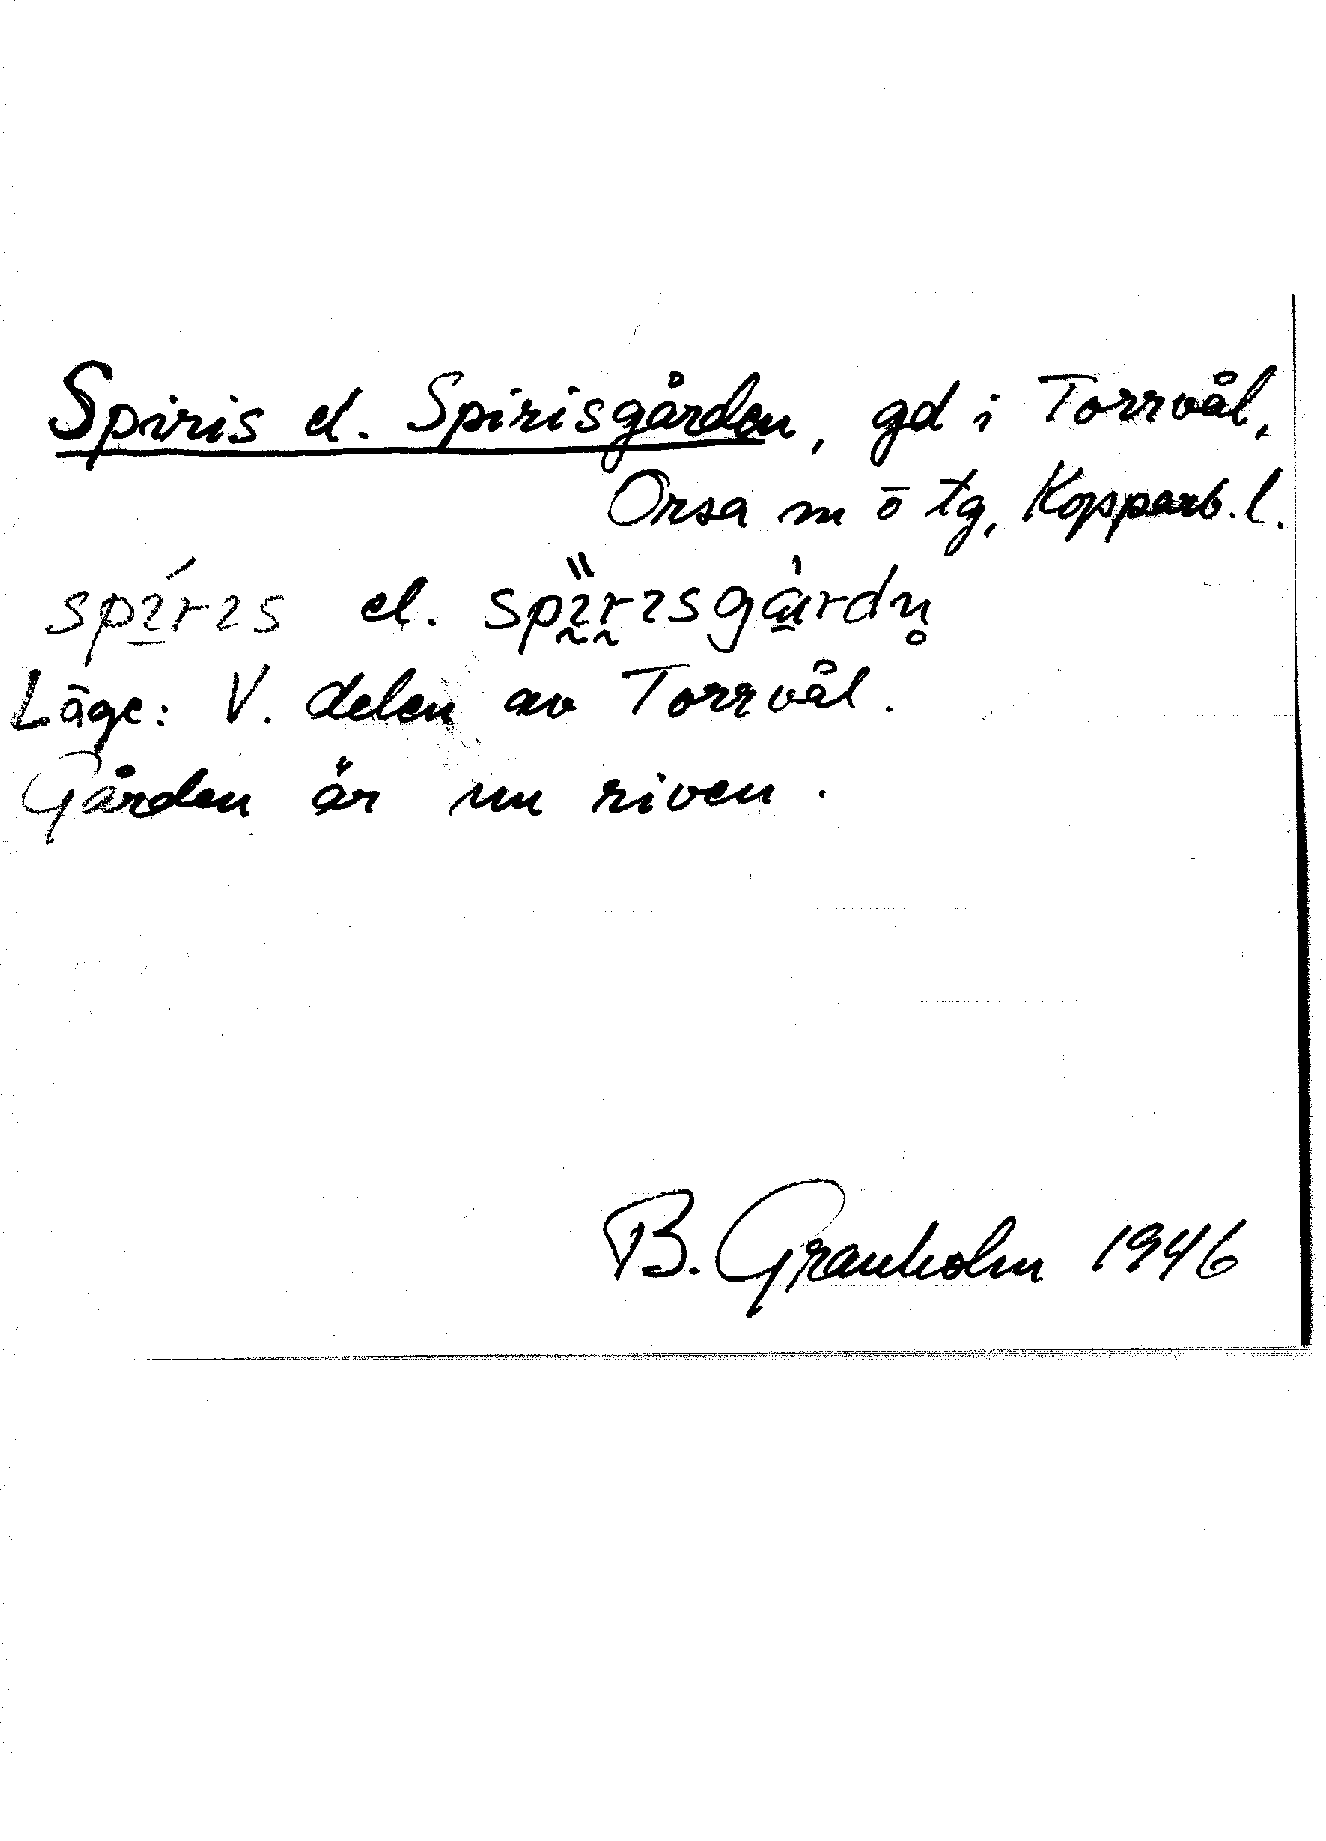 Spiris el. Spirisgården, gd i Torrvål,
Orsa m ō tg, Kopparb. l.
spı̱́rıs el. spı̰̋r̰ısgà̱rdn̥
Läge: V. delen av Torrvål.
Gården är nu riven.
B. Granholm 1946